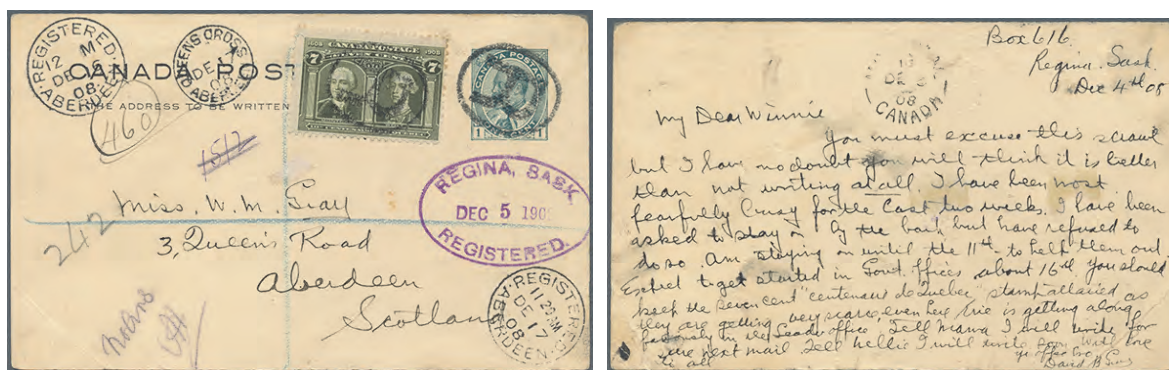 REGISTERED
12 M
DE 16
08
ABERDEEN
QUEENS CROSS
DE
08
ABERDEEN
CANADA POST
THE ADDRESS TO BE WRITTEN
1608 CANADA POSTAGE 1908
7 7
CANADA POSTAGE
1 1
460
1512
REGINA, SASK.
DEC 5 190
REGISTERED.
242
Miss. W. M. Gray
3, Queen's Road
Aberdeen
Scotland
REGISTERED
11 20 AM
DE 17
08
ABERDEEN
Box 616.
Regina. Sask.
Dec 4th 08
DE 5
08
CANADA
My Dear Winnie
You must excuse this scrawl
but I have no doubt you will think it is better
than not writing at all. I have been most
fearfully busy for the last two weeks. I have been
asked to stay on by the bank but have refused to
do so. Am staying on until the 11th. to help them out
Expect to get started in Govt. offices about 16th. You should
keep the seven cent "centenaire de Quebec" stamp attached as
they are getting very scarce, even here. is getting along
famously in the Leader office. Tell Mama I will write for
sure next mail. Tell Nellie I will write soon. With love
to all
David B Gray